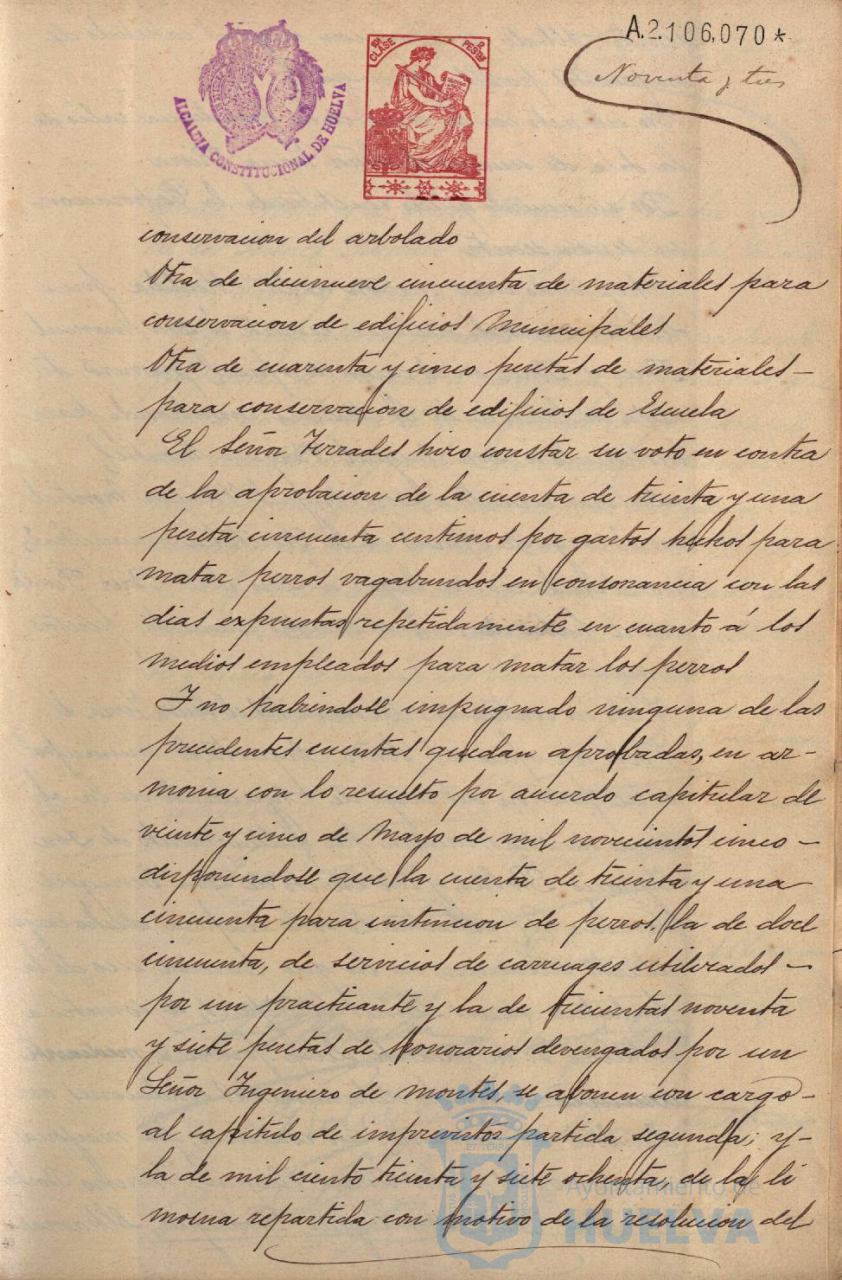 A.2.106,070*
Noventa y tres
ALCALDIA CONSTITUCIONAL DE HUELVA
CLASE
PESETAS
conservacion del arbolado
Otra de diecinueve cincuenta de materiales para
conservacion de edificios Municipales
Otra de cuarenta y cinco pesetas de materiales -
para conservacion de edificios de Escuela
El Señor Terrades hizo constar su voto en contra
de la aprobacion de la cuenta de treinta y una
peseta cincuenta centimos por gastos hechos para
matar perros vagabundos en consonancia con las
dias expuestas repetidamente en cuanto á los
medios empleados para matar los perros
Y no habiendose impugnado ninguna de las
precedentes cuentas quedan aprobadas, en ar-
monia con lo resuelto por acuerdo capitular de
veinte y cinco de Mayo de mil novecientos cinco -
disponiendose que la cuenta de treinta y una
cincuenta para estincion de perros, la de doce
cincuenta, de servicios de carruages utilizados -
por un practicante y la de trescientas noventa
y siete pesetas de honorarios devengados por un
Señor Ingeniero de montes, se abonen con cargo -
al capitulo de imprevistos partida segunda; y -
la de mil ciento treinta y siete ochenta, de la li
mosna repartida con motivo de la resolucion del
Ayuntamiento de
HUELVA